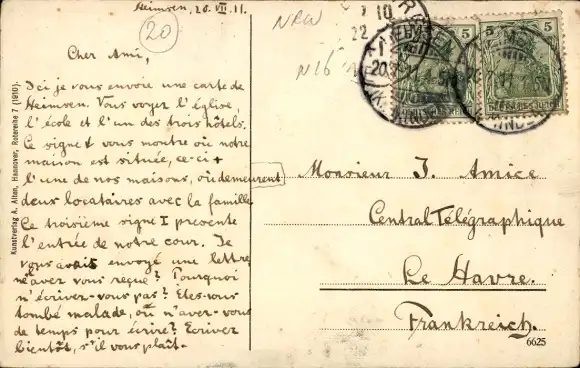 Heimsen, 20. VII. 11.
20
NRW
Cher Ami,
Ici je vous envoie une carte de
Heimsen. Vous voyez l'église,
l'école et l'un des trois hôtels.
Ce signe + vous montre où notre
maison est située, ce-ci +
l'une de nos maisons, où demeurent
deux locataires avec la famille.
Ce troisième signe I presente
l'entrée de notre cour. Je
vous avais envoyé une lettre,
n'avez vous reçue? Pourquoi
n'écrivez-vous pas? Êtes-vous
tombé malade, où n'avez-vous
de temps pour écrire? Ecrivez
bientôt, s'il vous plaît.
Kunstverlag A. Alten, Hannover, Rotereihe 7 (1910).
5
5
5
HEIMSEN
Monsieur J. Amice
Central Télégraphique
Le Havre.
Frankreich.
6625